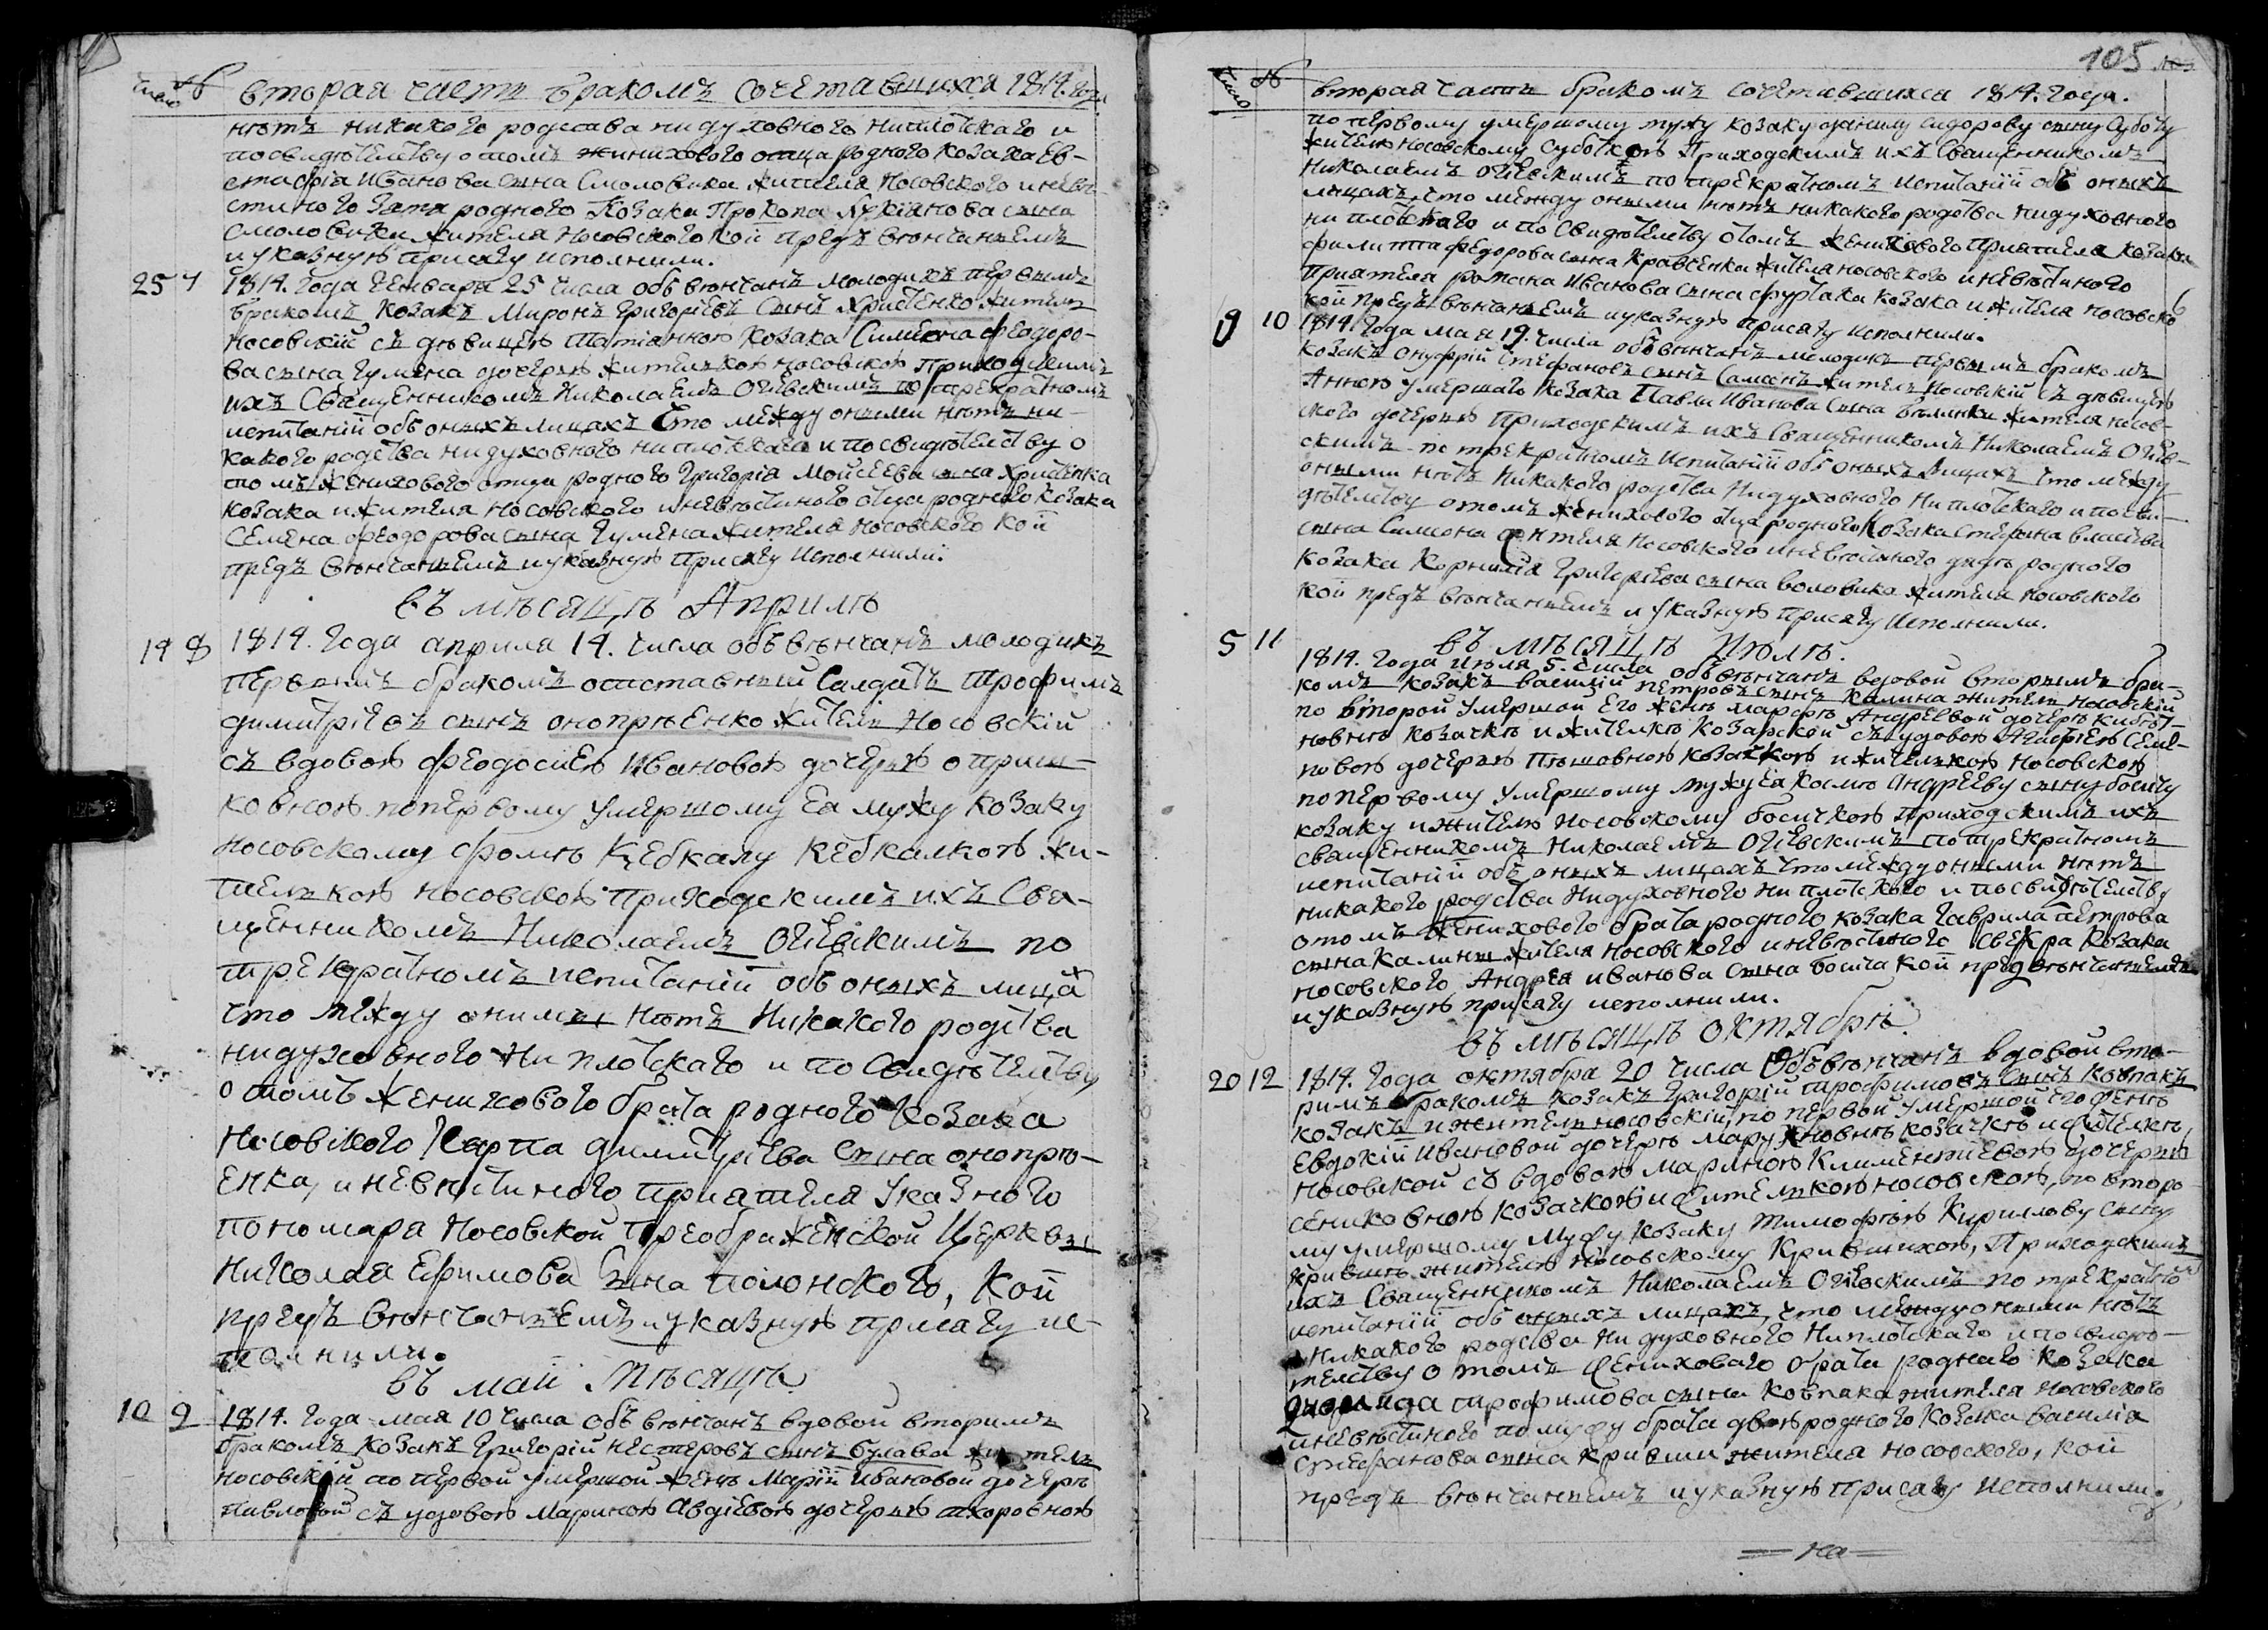 Число № вторая часть бракомъ сочетавшихся 1814. года
нѣтъ никакого родства ни духовного ни плотскаго и
по свидѣтелству о томъ жинихового отца родного козака Ев-
стафіа Иванова сына Смоловика жителя Носовского и невѣ-
стиного зятя родного козака Прокопа Лукіанова сына
Смоловики жителя Носовского кои предъ вѣнчаніемъ
и указную присягу исполнили.
25 7 1814. Года Генвара 25 числа обвѣнчанъ молодикъ первымъ
бракомъ козакъ Миронъ Григоріевъ сынъ Христенко житель
Носовскій съ дѣвицею Татіанною козака Симеона Феодоро-
ва сына Гумена дочерью жителькою носовскою Приходскимъ
ихъ Священникомъ Николаемъ Огіевскимъ по трекратномъ
испытаніи объ оныхъ лицахъ что между оными нѣтъ ни-
какого родства ни духовного ни плотскаго и по свидѣтелству о
томъ женихового отца родного Григоріа Мойсеева сына Христенка
козака и жителя Носовского и невѣстиного отца родного козака
Семена Феодорова сына Гумена жителя Носовского кои
предъ вѣнчаніемъ и указную присягу исполнили.
въ мѣсяцѣ Априлѣ
14 8 1814. Года априля 14. числа обвѣнчанъ молодикъ
первымъ бракомъ отставный Салдатъ Трофимъ
димитріевъ сынъ онопрѣенко житель Носовскій
съ вдовою Феодосіею Ивановою дочерью отриш-
ковною по первому умершому еа мужу козаку
Носовскому Фомѣ Кебкалу Кебкалкою жи-
телькою носовскою Приходскимъ ихъ Свя-
щенникомъ Николаемъ Огіевскимъ по
трекратномъ испытаніи объ оныхъ лицах
что между оними нѣтъ никакого родства
ни духовного ни плотскаго и по свидѣтелству
о томъ женихового брата родного козака
Носовского Карпа Димитріева сына онопрѣ-
енка, и невѣстиного приятеля указного
пономара Носовской Преображенской Церквы
Николая Ефимова сына полонского, кои
предъ вѣнчаніемъ и указную присягу ис-
полнили.
въ маи мѣсяцѣ
10 9 1814. Года мая 10 числа обвѣнчанъ вдовой вторимъ
бракомъ козакъ Григорій Нестеровъ сынъ булава житель
носовскій по первой умершой женѣ Маріи Ивановой дочерѣ
павловой съ удовою Мариною Авдіевою дочерью ткоровною
105
Число № вторая часть бракомъ сочетавшихся 1814. года.
по первому умершому мужу козаку сидорову сыну Суботу
жителю носовскому Суботкою Приходскимъ ихъ Священникомъ
Николаемъ Огіевскимъ по трекратномъ испитаніи объ оныхъ
лицахъ, что между оными нѣтъ никакого родства ни духовного
ни плотскаго и по свидѣтелству о томъ женихового приятеля козака
филиппа федорова сына Кравченка жителя носовского и невѣстиного
приятеля романа Иванова сына козака и жителя носовско
кои предъ вѣнчаніемъ и указную присягу исполнили.
10 1814. Года мая 19. числа обвѣнчанъ молодикъ первымъ бракомъ
козакъ онуфрій Стефановъ сынъ Самсонъ житель Носовскій съ дѣвицею
Анною умершаго козака Павла Иванова сына жителя носов-
ского дочерью Приходскимъ ихъ Священникомъ Николаемъ Огіев-
скимъ по трекратномъ испитаніи объ оныхъ лицахъ что между
оными нѣтъ никакого родства ни духовного ни плотскаго и по сви-
дѣтелству о томъ женихового отца родного козака Стефана власова
сына Самсона жителя Носовского и невѣстиного дядѣ родного
козака Корниліа Григоріева сына воловика жителя Носовского
кои предъ вѣнчаніемъ и указную присягу исполнили.
въ мѣсяцѣ Июлѣ.
5 11 1814. Года июля 5. числа обвѣнчанъ вдовой вторымъ бра-
комъ козакъ василій петровъ сынъ Калина житель Носовскій
по второй умершой его женѣ марфѣ Андреевой дочерѣ
новнѣ козачкѣ и жителкѣ козарской съ удовою Агафіею Семе-
новою дочерью козачкою и жителькою носовскою
по первому умершому мужу еа Космѣ Андрееву сыну босачу
козаку и жителю носовскому босачкою Приходскимъ ихъ
священникомъ Николаемъ Огіевскимъ по трекратномъ
испитаніи объ оныхъ лицахъ что между оными нѣтъ
никакого родства ни духовного ни плотского и по свидѣтелству
о томъ женихового брата родного козака Гаврила петрова
сына калины жителя носовского и невѣстиного свекра козака
носовского Андреа иванова сына босача кои предъ вѣнчаніемъ
и указную присягу исполнили.
въ мѣсяцѣ октябрѣ.
20 12 1814. Года октября 20 числа обвѣнчанъ вдовой вто-
римъ бракомъ козакъ Григорій трофимовъ сынъ Ковпакъ
козакъ и житель носовскій, по первой умершой его женѣ
Евдокіи Ивановой дочерѣ козачкѣ и жителкѣ
носовской съ вдовою Мариною Климентіевою дочерью
сениковною козачкою и жителькою носовскою, по второ-
му умершому мужу козаку Тимофѣю Кирилову сыну
Крившѣ жителю носовскому Крившихою, Приходскимъ
ихъ Священникомъ Николаемъ Огіевскимъ по трекратно
испитаніи объ оныхъ лицахъ, что между оными нѣтъ
никакого родства ни духовного ни плотскаго и по свидѣ-
телству о томъ женихового брата роднаго козака
трофимова сына Ковпака жителя Носовского
и невѣстиного по мужу брата двоюродного козака василіа
стефанова сына кривши жителя носовского, кои
предъ вѣнчаніемъ и указную присягу исполнили.